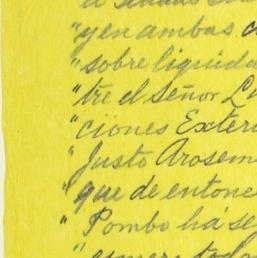 "yen ambas
"sobre liquida
"tre el Señor
"ciones Exteri
"Justo Arosem
"que de entonc
"Pombo ha se